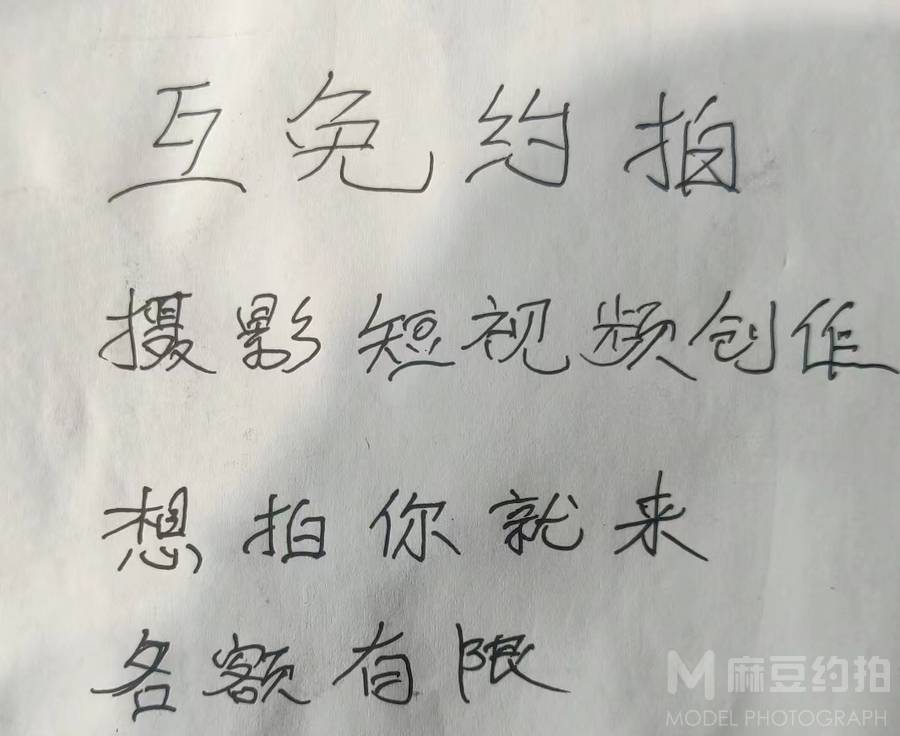 互免约拍
摄影短视频创作
想拍你就来
各额有限
M 麻豆约拍
MODEL PHOTOGRAPH